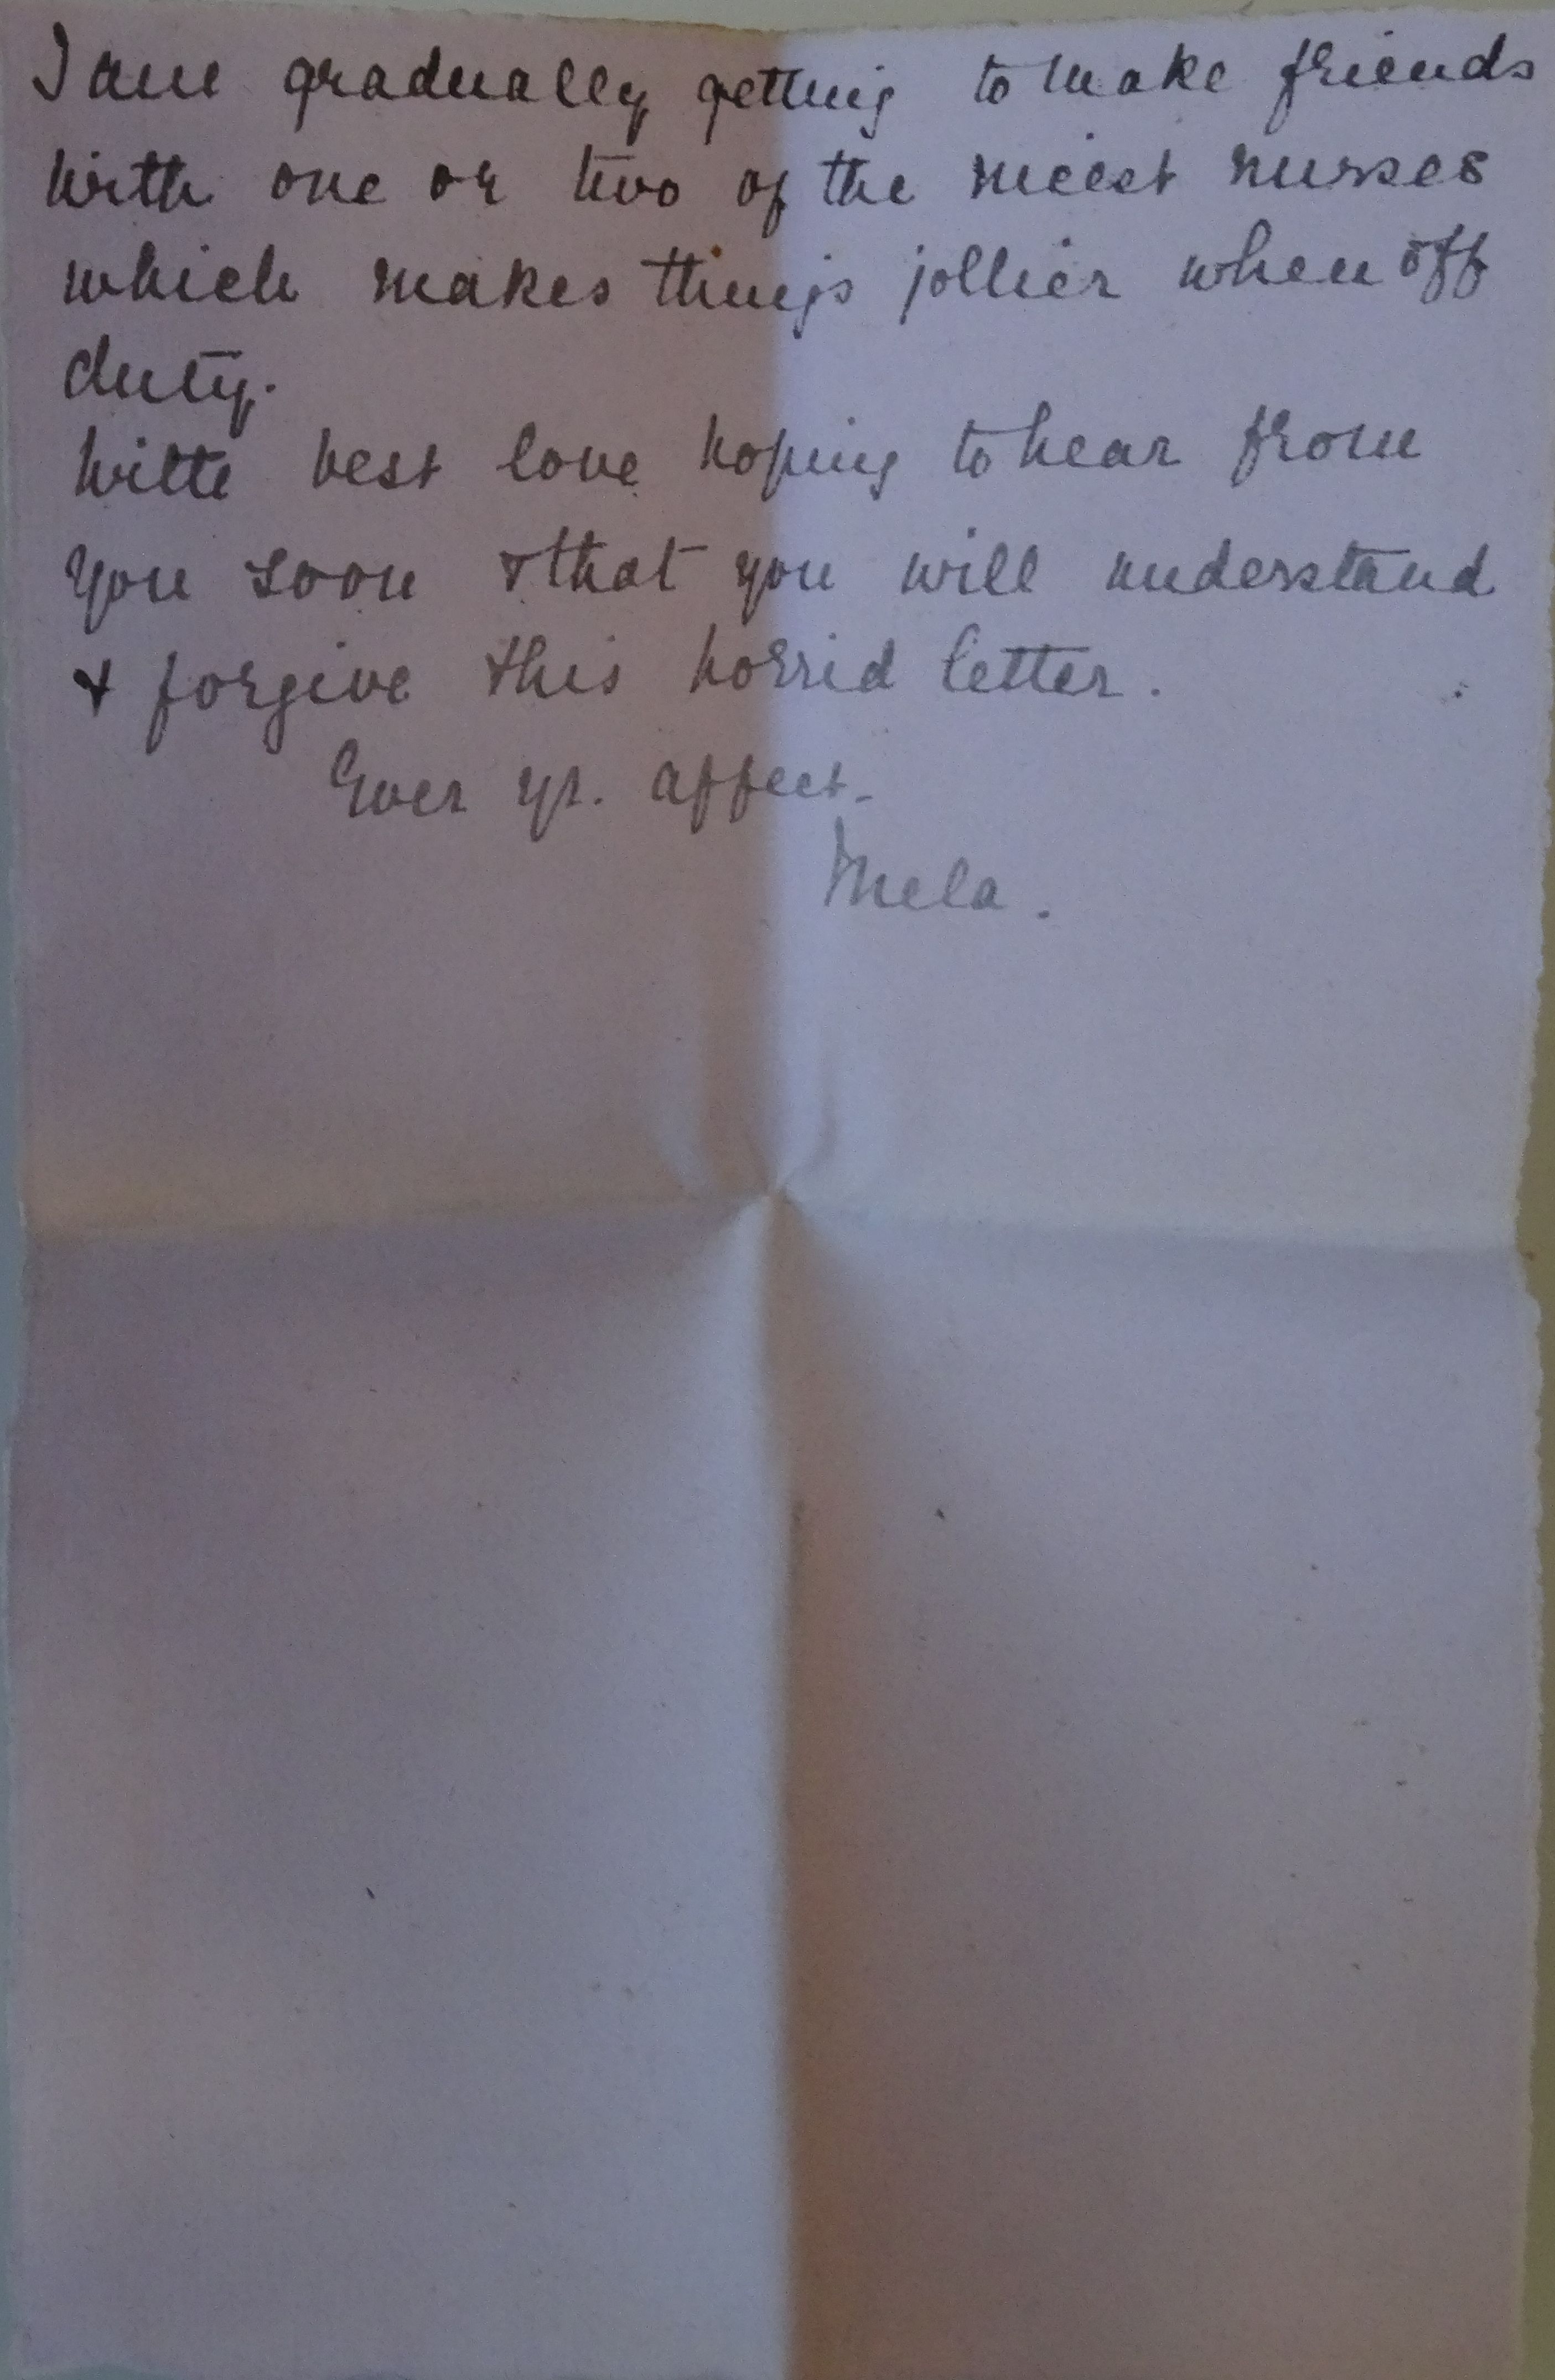 I am gradually getting to make friends
with one or two of the nicest nurses
which makes things jollier when off
duty.
With best love hoping to hear from
you soon & that you will understand
& forgive this horrid letter.
Ever yr. affect.
Mela.